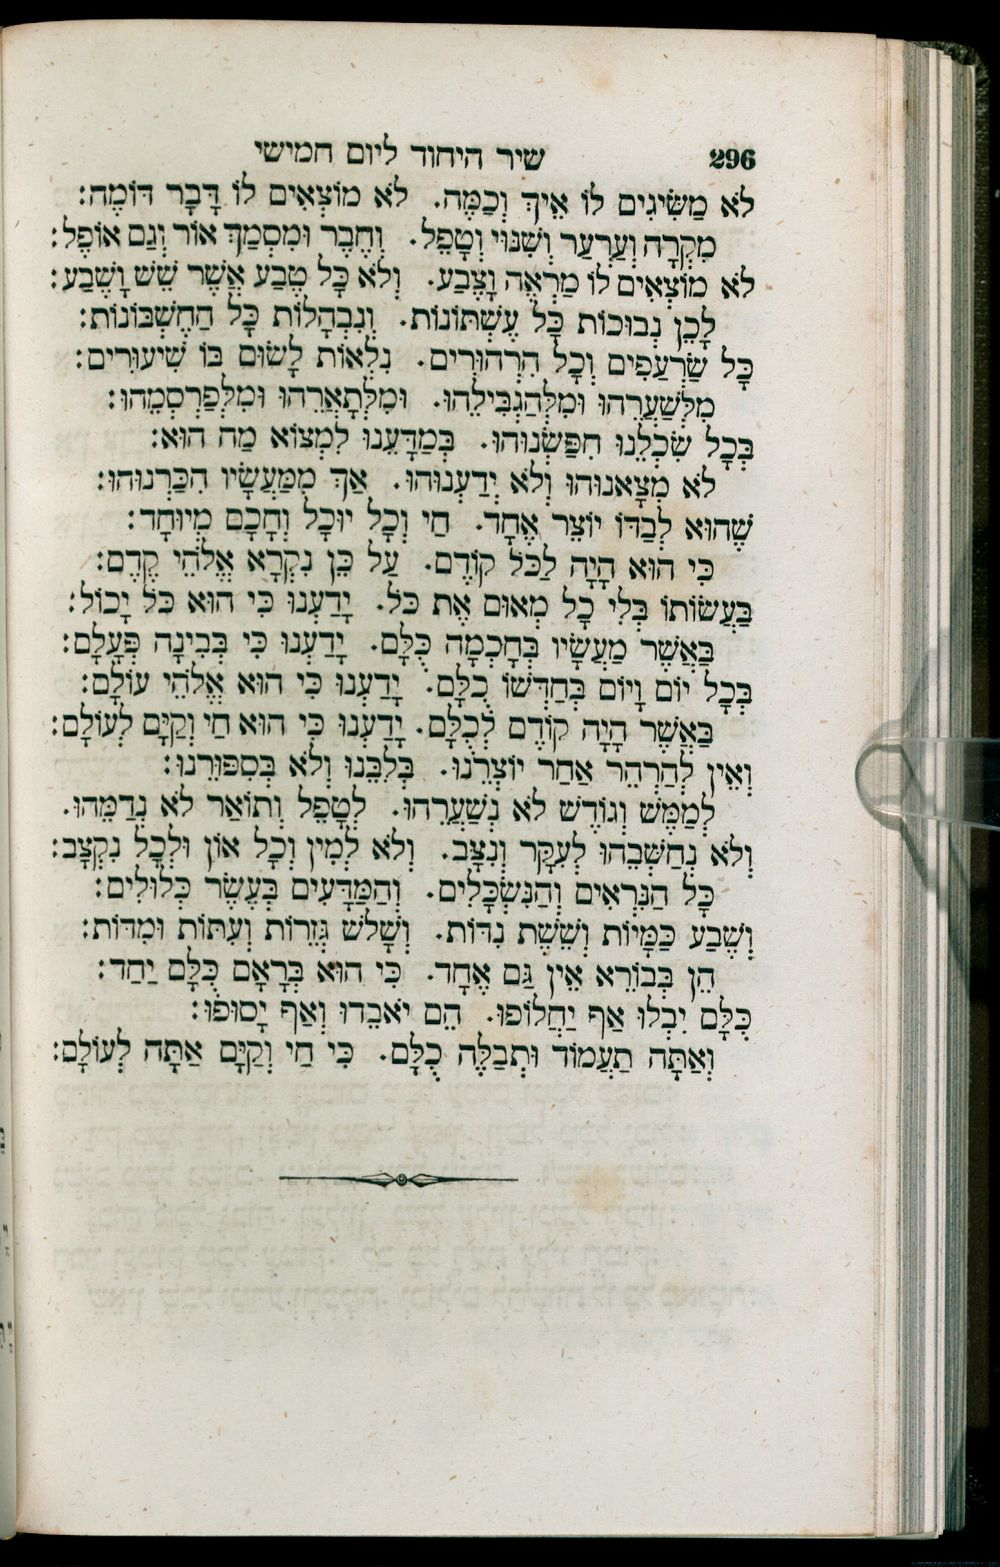 296 שיר היחוד ליום חמישי
לֹא מַשִּׂיגִים לוֹ אֵיךְ וְכַמֶּה. לֹא מוֹצְאִים לוֹ דָּבָר דּוֹמֶה:
מִקְרֶה וְעַרְעַר וְשִׁנּוּי וְטָפֵל. וְחֶבֶר וּמִסְמַךְ אוֹר וְגַם אוֹפֶל:
לֹא מוֹצְאִים לוֹ מַרְאֶה וָצֶבַע. וְלֹא כָל טֶבַע אֲשֶׁר שֵׁשׁ וָשֶׁבַע:
לָכֵן נְבוּכוֹת כָּל עֶשְׁתּוֹנוֹת. וְנִבְהָלוֹת כָּל הַחֶשְׁבּוֹנוֹת:
כָּל שַׂרְעַפִּים וְכָל הִרְהוּרִים. נִלְאוֹת לָשׂוּם בּוֹ שִׁיעוּרִים:
מִלְּשַׁעֲרֵהוּ וּמִלְּהַגְבִּילֵהוּ. וּמִלְּתָאֲרֵהוּ וּמִלְּפַרְסְמֵהוּ:
בְּכָל שִׂכְלֵנוּ חִפַּשְׂנוּהוּ. בְּמַדָּעֵנוּ לִמְצוֹא מַה הוּא:
לֹא מְצָאנוּהוּ וְלֹא יְדַעְנוּהוּ. אַךְ מִמַּעֲשָׂיו הִכַּרְנוּהוּ:
שֶׁהוּא לְבַדּוֹ יוֹצֵר אֶחָד. חַי וְכָל יוּכָל וְחָכָם מְיוּחָד:
כִּי הוּא הָיָה לַכֹּל קוֹדֶם. עַל כֵּן נִקְרָא אֱלֹהֵי קֶדֶם:
בַּעֲשׂוֹתוֹ בְּלִי כָל מְאוּם אֶת כֹּל. יָדַעְנוּ כִּי הוּא כֹּל יָכוֹל:
בַּאֲשֶׁר מַעֲשָׂיו בְּחָכְמָה כֻּלָּם. יָדַעְנוּ כִּי בְּבִינָה פְּעָלָם:
בְּכָל יוֹם וָיוֹם בְּחַדְּשׁוֹ כֻלָּם. יָדַעְנוּ כִּי הוּא אֱלֹהֵי עוֹלָם:
בַּאֲשֶׁר הָיָה קוֹדֶם לְכֻלָּם. יָדַעְנוּ כִּי הוּא חַי וְקַיָּם לְעוֹלָם:
וְאֵין לְהַרְהֵר אַחַר יוֹצְרֵנוּ. בְּלִבֵּנוּ וְלֹא בְּסִפּוּרֵנוּ:
לְמַמָּשׁ וְגוֹדֶשׁ לֹא נְשַׁעֲרֵהוּ. לְטָפֵל וְתוֹאַר לֹא נְדַמֵּהוּ.
וְלֹא נְחַשְּׁבֵהוּ לְעִקָּר וְנִצָּב. וְלֹא לְמִין וְכָל אוֹן וּלְכָל נִקְצָב:
כָּל הַנִּרְאִים וְהַנִּשְׂכָּלִים. וְהַמַּדָּעִים בְּעֶשֶׂר כְּלוּלִים:
וְשֶׁבַע כַּמִּיּוֹת וְשֵׁשֶׁת נִדּוֹת. וְשָׁלֹשׁ גְּזֵרוֹת וְעִתּוֹת וּמִדּוֹת:
הֵן בְּבוֹרֵא אֵין גַּם אֶחָד. כִּי הוּא בְּרָאָם כֻּלָּם יַחַד:
כֻּלָּם יִבְלוּ אַף יַחֲלוֹפוּ. הֵם יֹאבֵדוּ וְאַף יָסוּפוּ:
וְאַתָּה תַעֲמוֹד וּתְבַלֶּה כֻלָּם. כִּי חַי וְקַיָּם אַתָּה לְעוֹלָם: